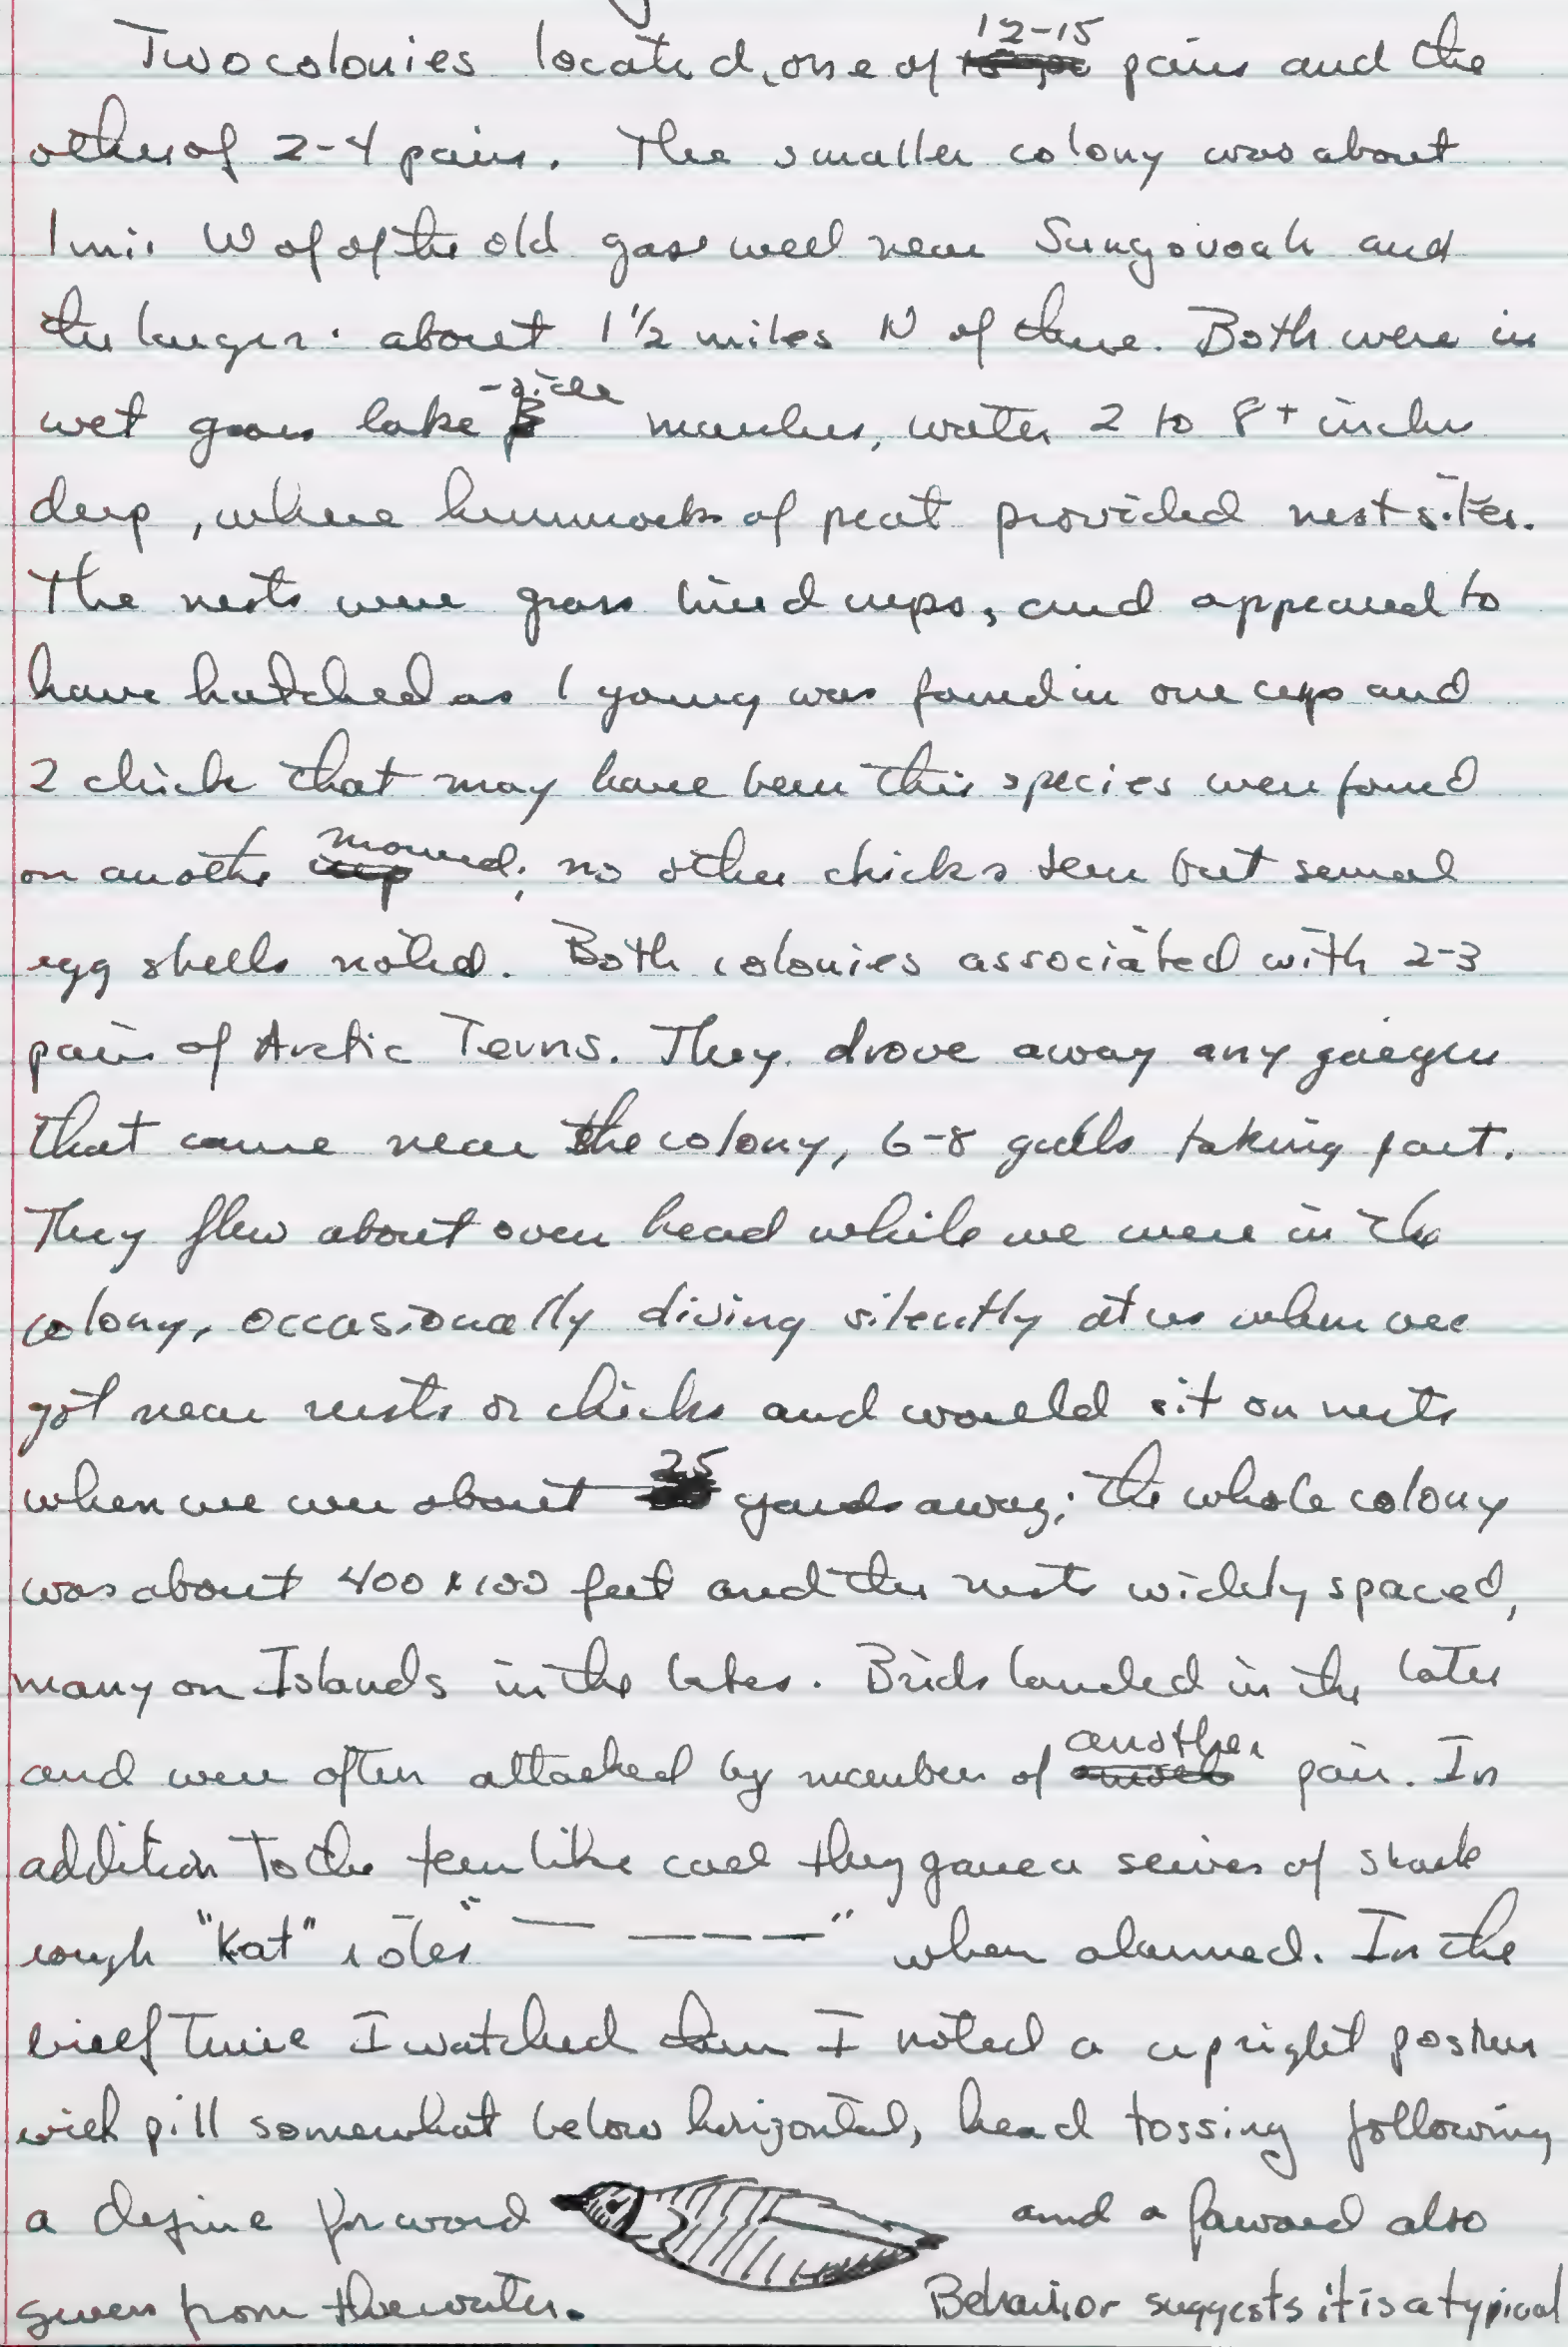 Two colonies located, one of 12-15 pairs and the
other of 2-4 pairs. The smaller colony was about
1 mi. W of of the old gas well near Sungovoak and
the larger about 1 1/2 miles N of there. Both were in
wet grass lake-side marshes, water 2 to 8+ inches
deep, where hummocks of peat provided nest sites.
The nests were grass lined cups, and appeared to
have hatched as 1 young was found in one cup and
2 chick that may have been this species were found
on another mound; no other chicks seen but several
egg shells noted. Both colonies associated with 2-3
pairs of Arctic Terns. They drove away any jaeger
that came near the colony, 6-8 gulls taking part.
They flew about over head while we were in the
colony, occasionally diving silently at us when we
got near nests or chicks and would sit on nests
when we were about 25 yards away; the whole colony
was about 400 x 100 feet and the nests widely spaced,
many on Islands in the lakes. Brids landed in the later
and were often attacked by member of another pair. In
addition to the tern like call they gave a series of
rough "Kat" notes "— — — —" when alarmed. In the
brief time I watched them I noted a upright posture
with pill somewhat below horizontal, head tossing following
a forward and a forward also
given from the water. Behavior suggests it is a typical